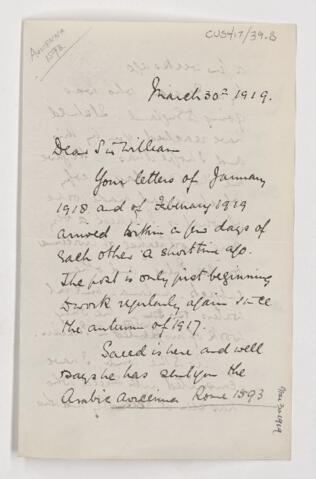 Avicenna
1593
CUS417/39-B
March 30th 1919.
Dear Sir William
Your letters of January
1918 and of February 1919
arrived within a few days of
each other a short time ago.
The post is only just beginning
to work regularly again since
the autumn of 1917.
Saeed is here and well
says he has sent you the
Arabic Avicenna Rome 1593
Mar. 30 1919